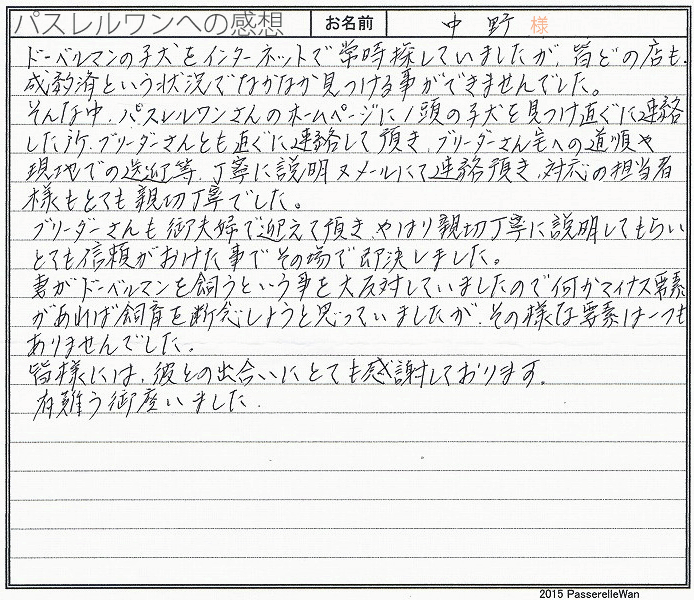 パスレルワンへの感想 お名前 中野 様
ドーベルマンの子犬をインターネットで常時探していましたが、皆どの店も、
成約済という状況でなかなか見つける事ができませんでした。
そんな中、パスレルワンさんのホームページに1頭の子犬を見つけ直ぐに連絡
した所、ブリーダーさんとも直ぐに連絡して頂き、ブリーダーさん宅への道順や
現地での送迎等、丁寧に説明メールにて連絡頂き、対応の担当者
様もとても親切丁寧でした。
ブリーダーさんも御夫婦で迎えて頂き やはり親切丁寧に説明してもらい
とても信頼がおけた事でその場で即決しました。
妻がドーベルマンを飼うという事を大反対していましたので何かマイナス要素
があれば飼育を断念しようと思っていましたが、その様な要素は一つも
ありませんでした。
皆様には、彼との出合いにとても感謝しております。
有難う御座いました.
2015 PasserelleWan